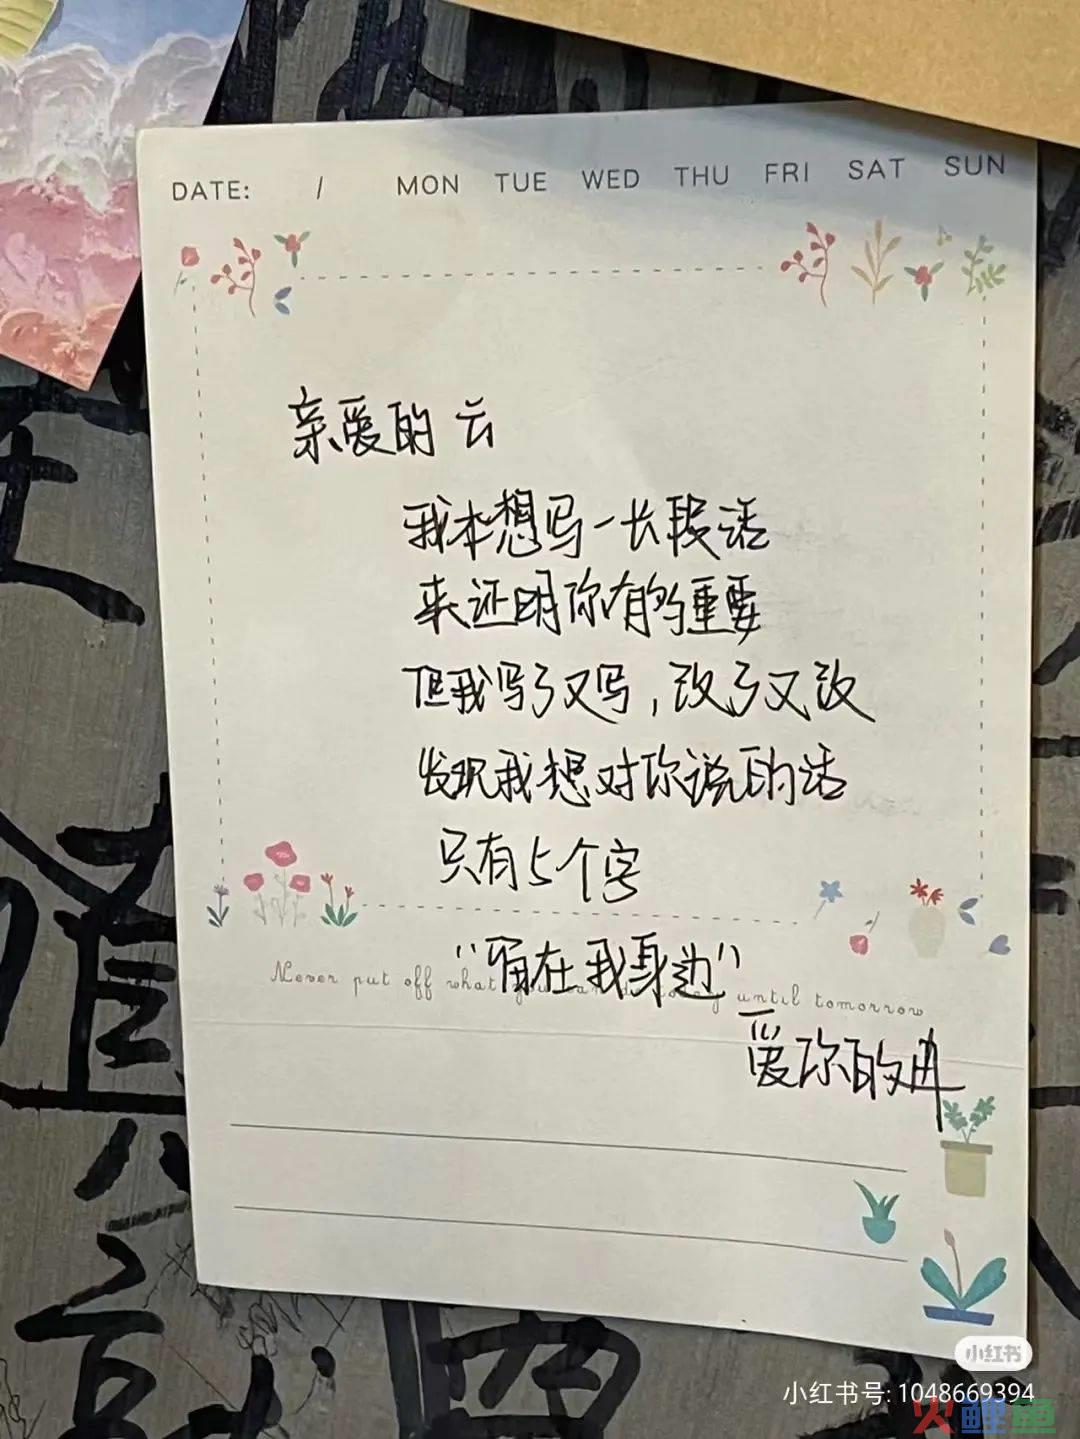 DATE: / MON TUE WED THU FRI SAT SUN
亲爱的 云
我本想写一长段话
来证明你有的重要
但我写了又写，改了又改
发现我想对你说的话
只有5个字
“留在我身边”
Never put off what you can do today until tomorrow
爱你的冉
小红书
小红书号: 1048669394
火鲤鱼